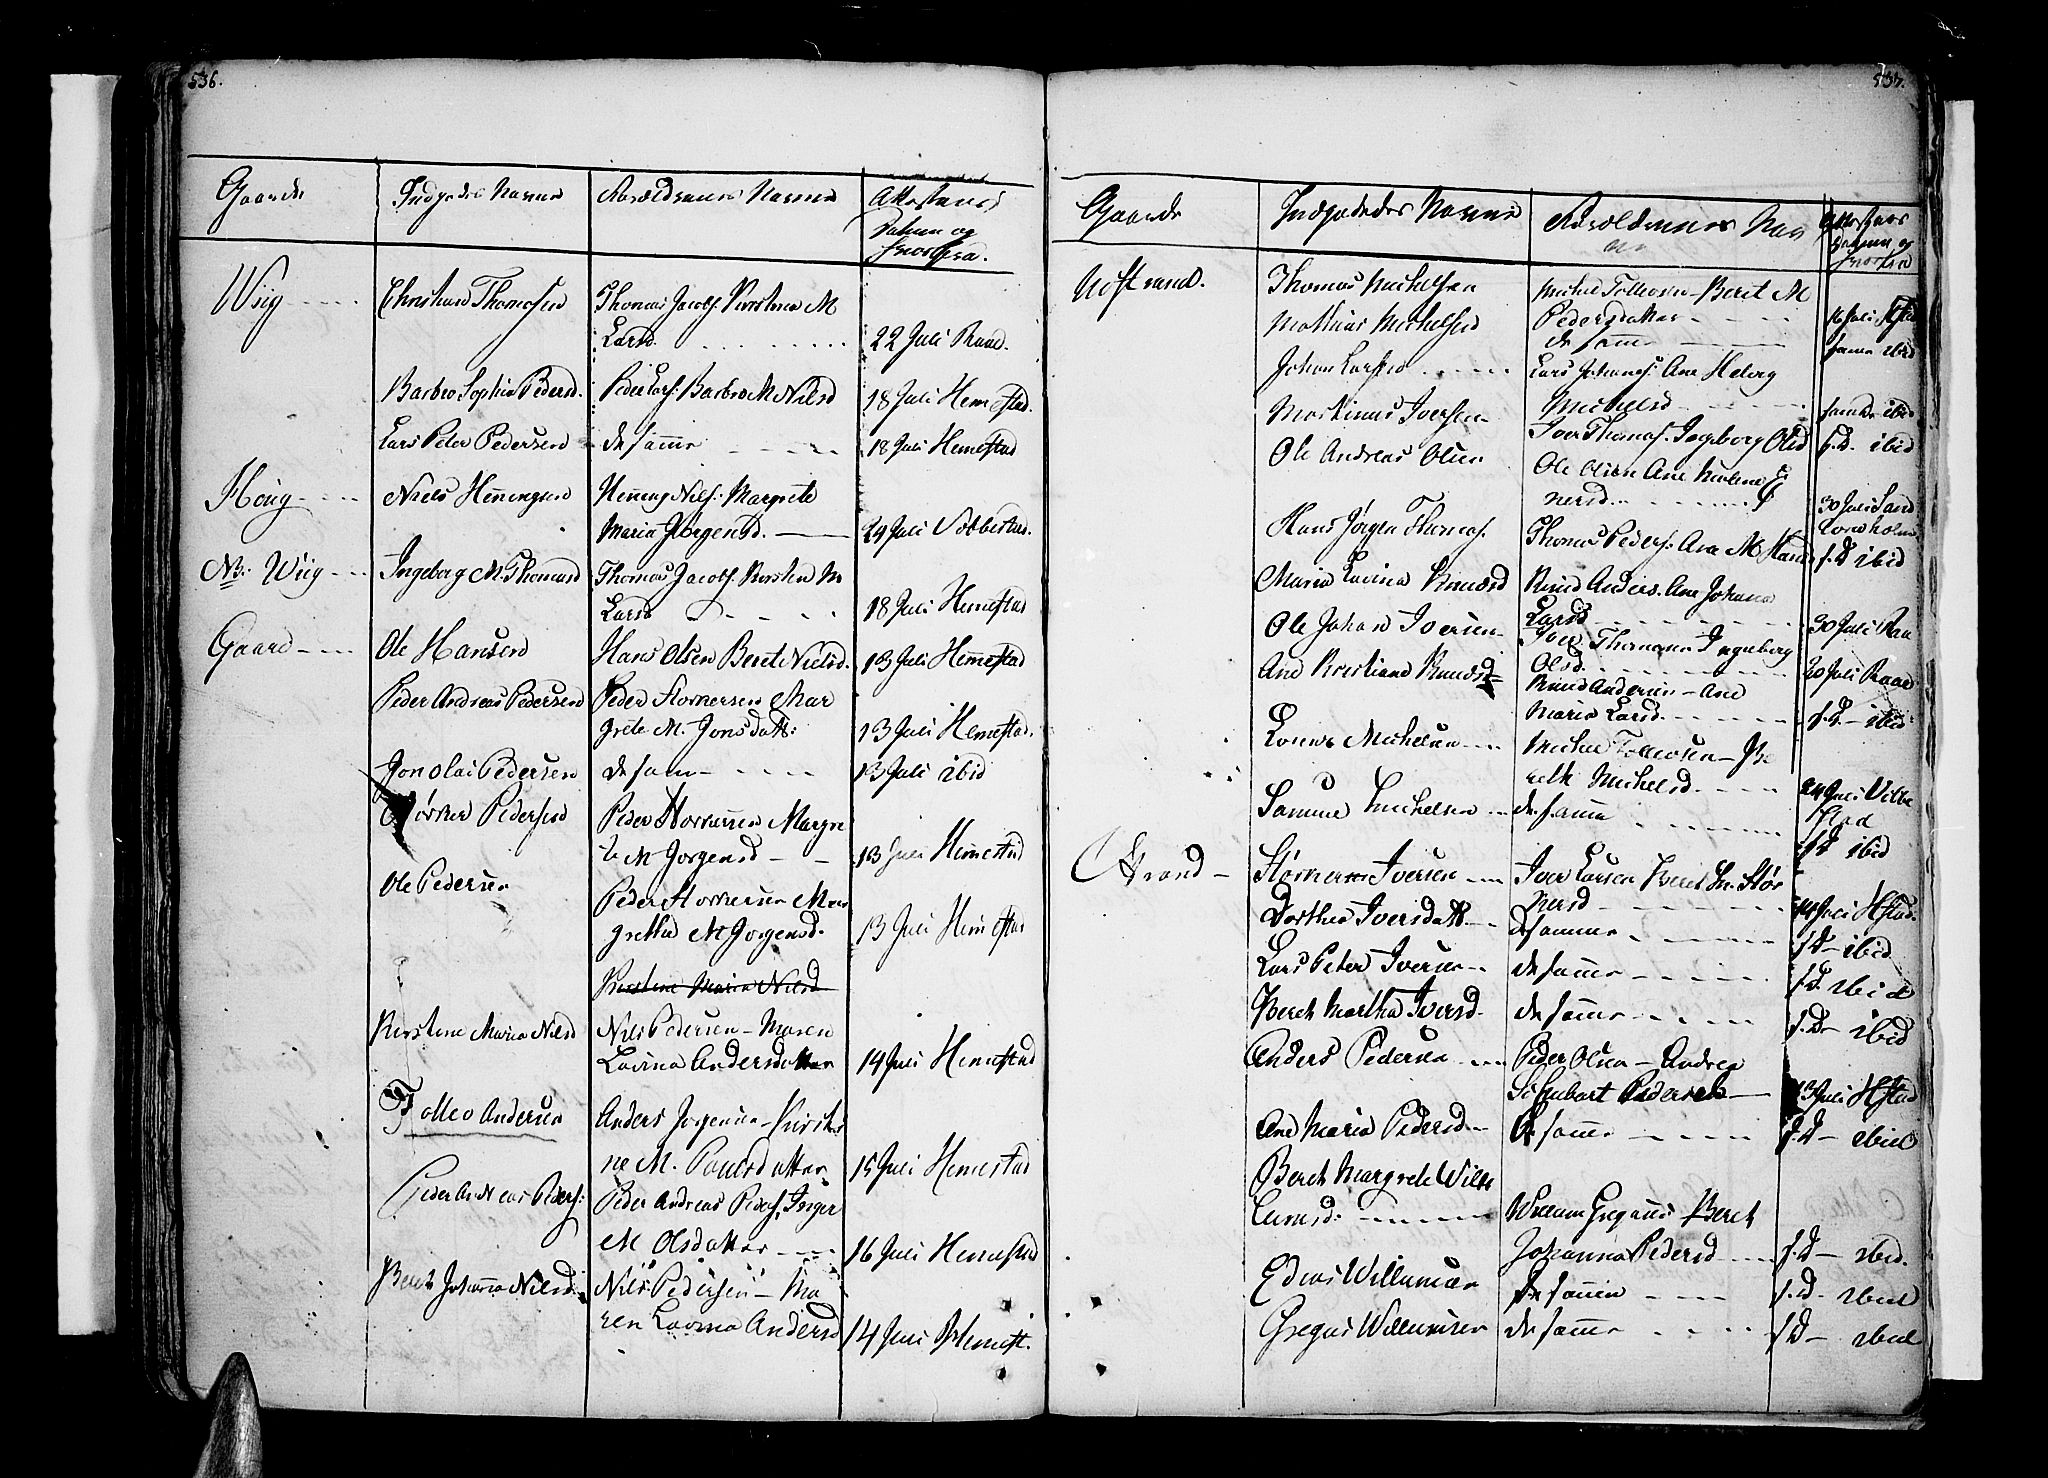 536.
Gaarde
Indpodes Navne
Forældrenes Navne
Attestens
Datum og
hvorfra.
Wiig
Christian Thomesen
Thomas Jacobs. Kirstena M
Larsd.
22 Juli Raae.
Barbro Sophia Pedersd.
Peder Lars. Barbro M Nielsd
18 Juli Hemestad.
Lars Peter Pedersen
de samme
18 Juli Hemestad
Houg
Niels Henningsen
Henning Nils. Margrete
Maria Jørgensd.
29 Juli Vebbestad.
Nr. Wiig
Ingeborg M. Thomasd
Thomas Jacobs. Kirsten M
Larsd
18 Juli Hemestad
Gaard
Ole Hansen
Hans Olsen Beret Nielsd.
13 Juli Hemmestad
Peder Andreas Pedersen
Peder Størkersen Mar
grete M. Jonsdatt:
13 Juli Hemestad.
Jon Olai Pedersen
de sam
13 Juli ibid
Størker Pedersen
Peder Størkersen Margre
te M Jørgensd
13 Juli Hemmestad
Ole Pedersen
Peder Størkersen Mar
gretha M Jørgensd.
13 Juli Hemestad
Kirstene Maria Nilsd
Kirstene Maria Nilsd
Nils Pedersen - Maren
Lavina Andersdatter
14 Juli Hemestad
Tolleo Andersen
Anders Jørgensen Kirsti
ne M. Poulsdatter
15 Juli Hemestad
Peder Andreas Peders:
Peder Andreas Peders. Inger
M Olsdatter
16 Juli Hemestad
Beret Johanna Nilsd.
Nils Pedersen - Ma
ren Lavina Andersd
14 Juli Hemest.
537.
Gaarde
Indpodedes Navne
Forældrenes Nav
ne
Attestens
Datum og
hvorfra
Thomas Michelsen
Michel Tolleosen - Beret M
Pedersdatter
16 Juli Hstad
Mathias Michelsen
de samme
samme ibid
Johan Larsen
Lars Johans. Ane Helvig
Michelsd
samme ibid
Martinus Iversen
Iver Thomas. Ingeborg Olsd
s.D. ibid
Ole Andreas Olsen
Ole Olsen Ane Malena E
nersd
30 Juli Sand
Hans Jørgen Thomas.
Thomas Peders. Ane M Hans
s.D ibid
Maria Lavina Knudsd
Knud Anders. Ane Johana
Larsd
30 Juli Raa
Ole Johan Iversen
Iver Thomasen Ingeborg
Olsd.
30 Juli Raae
Ane Kristiane Knudsd
Knud Andersen - Ane
Maria Larsd.
s.D - ibid
Lorens Michelsen
Michel Tolleosen - Be
reth Michelsd.
24 Juli Vebbe
stad
Samuel Michelsen
de samme
s D ibid
Strand
Størker Iversen
Iver Larsen Beret M. Stør
kersd
14 Juli Hstad.
Dorthea Iversdatt.
de samme
s D - ibid
Lars Peter Iversen
de samme
s D. ibid
Beret Martha Iversd.
de samme
s.D - ibid
Anders Pedersen
Peder Olsen - Andrea
Schubart Pedersen
13 Juli Hstad
Ane Maria Pedersd
de samme
s.D - ibid
Beret Margrete Wille
umsd:
Willum Gregus. Beret
Johanna Pedersd
s.D - ibid.
Edvas Willumsen
de samme
s.d. ibid
Gregus Willumsen
de samme
s D - ibid